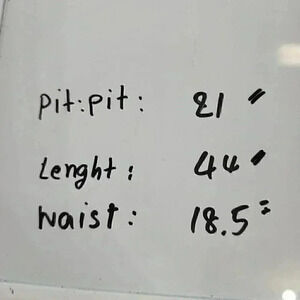 pit:pit: 21"
Lenght: 44"
Waist: 18.5"